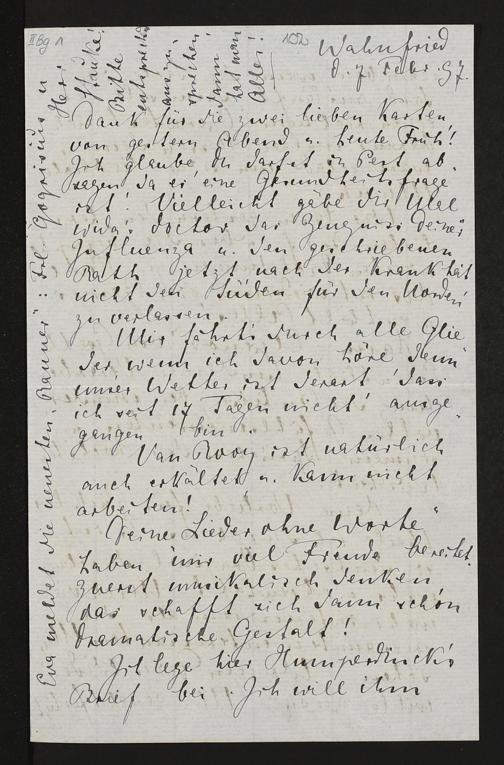 II Bg 1
102
Wahnfried
d. 7 Febr. 97.
Dank für die zwei lieben Karten
von gestern Abend u. heute Früh!
Ich glaube du darfst in Pest ab-
sagen da es eine Gesundheitsfrage
ist! Vielleicht gäbe dir
Doctor das Zeugniss Deiner
Influenza u. den geschriebenen
Rath jetzt nach der Krankheit
nicht den Süden für den Norden
zu verlassen.
Mir fährt's durch alle Glie
der wenn ich davon höre denn
unser Wetter ist derart dass
ich seit 17 Tagen nicht ausge-
gangen bin.
Van Rooy ist natürlich
auch erkältet u. kann nicht
arbeiten!
Deine „Lieder ohne Worte"
haben mir viel Freude bereitet.
zuerst musikalisch denken
das schafft sich dann schon
dramatische Gestalt!
Ich lege hier Humperdinck's
Brief bei. Ich will ihm
Eva meldet die neuesten „Banner": Frl. u
Her:
Bitte
aus zu
sprechen!
Dann
hat man
Alles!